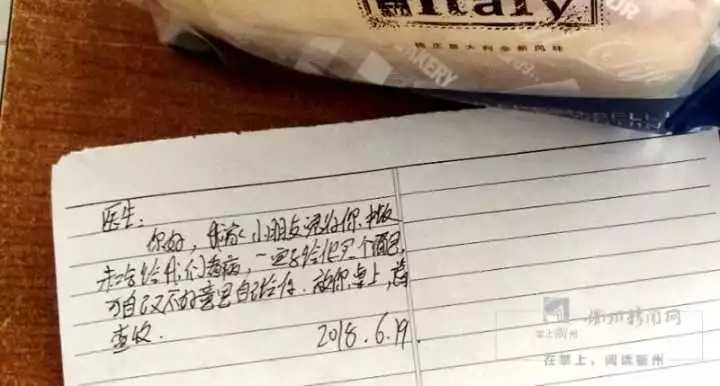 Italy
意大利全新风味
BAKERY
Life
医生:
你好，我家小朋友说你饭
未吃给我们看病，一定要给你买个面包,
可自己又不好意思自己给你. 放你桌上,请
查收.
2018.6.19.
掌上衢州
衢州新闻网
在掌上，阅读衢州